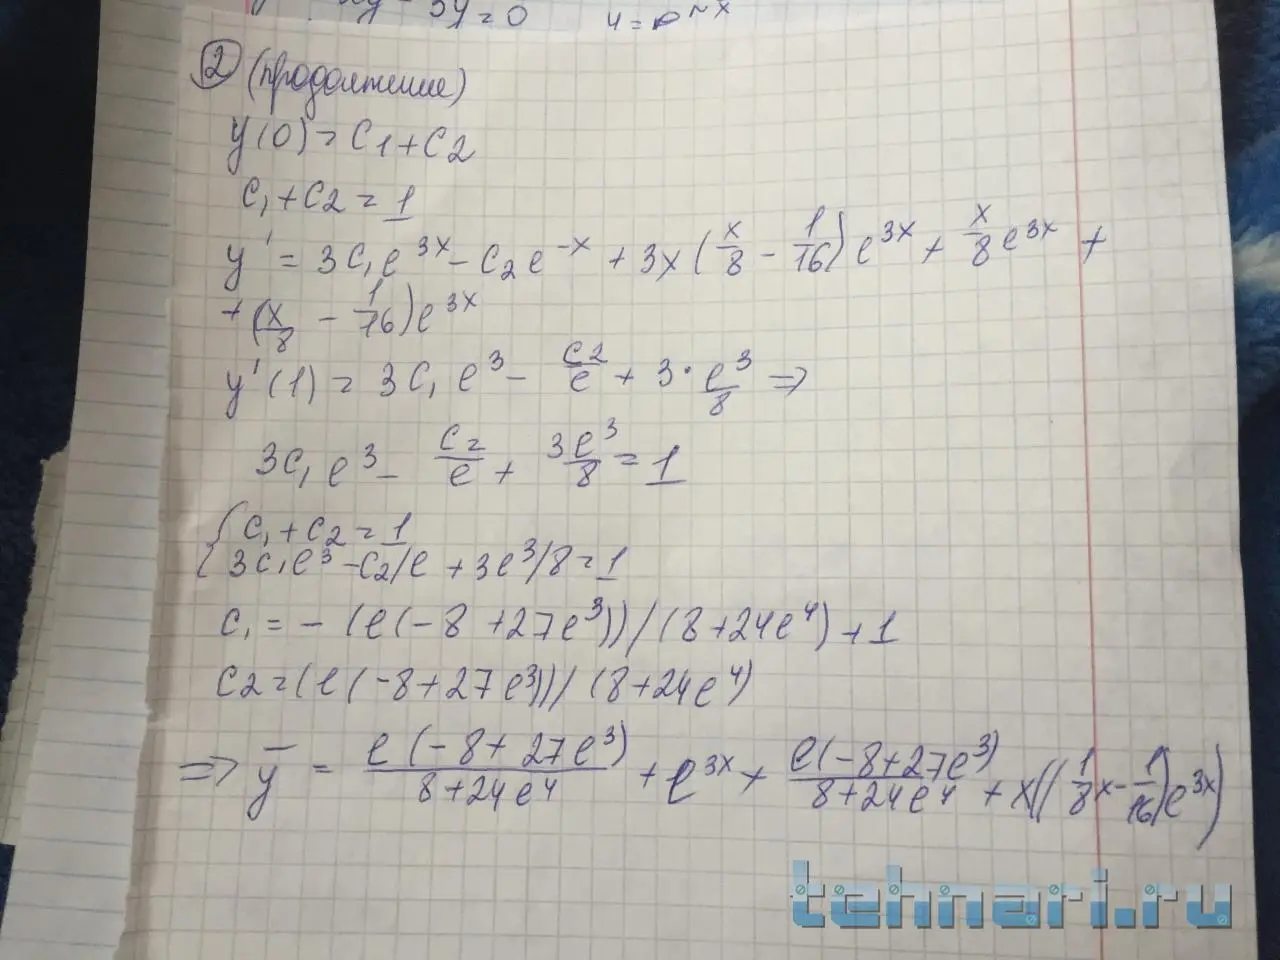 - 5y = 0 y = e
② (продолжение)
y(0) = C1 + C2
C1 + C2 = 1
y' = 3C1e^3x - C2e^-x + 3x(x/8 - 1/16)e^3x + x/8 e^3x +
+ (x/8 - 1/16)e^3x
y'(1) = 3C1e^3 - C2/e + 3·e^3/8 ⇒
3C1e^3 - C2/e + 3e^3/8 = 1
{C1 + C2 = 1
3C1e^3 - C2/e + 3e^3/8 = 1
C1 = - (e(-8 + 27e^3))/(8 + 24e^4) + 1
C2 = (e(-8 + 27e^3))/(8 + 24e^4)
⇒ ȳ = e(-8 + 27e^3)/8 + 24e^4 + e^3x + e(-8 + 27e^3)/8 + 24e^4 + x((1/8 x - 1/16)e^3x)
tehnari.ru